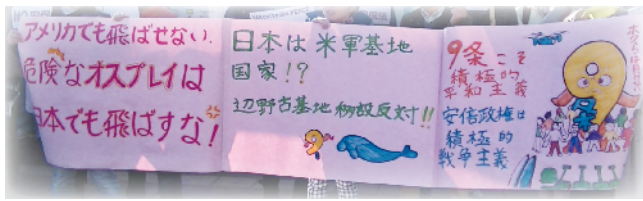 アメリカでも飛ばせない.
危険なオスプレイは
日本でも飛ばすな!
日本は米軍基地
国家!?
辺野古基地移設反対!!
9条こそ
積極的
平和主義
安倍政権は
積極的
戦争主義
9条